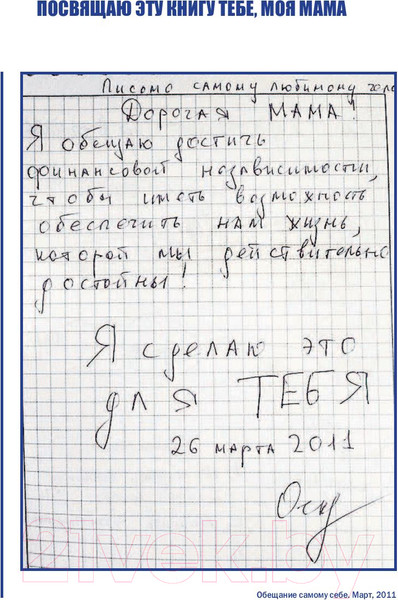 ПОСВЯЩАЮ ЭТУ КНИГУ ТЕБЕ, МОЯ МАМА
Письмо самому любимому чело
Дорогая МАМА!
Я обещаю достичь
финансовой независимости,
чтобы иметь возможность
обеспечить нам жизнь,
которой мы действительно
достойны!
Я сделаю это
для ТЕБЯ
26 марта 2011
21vek.by
Обещание самому себе. Март, 2011